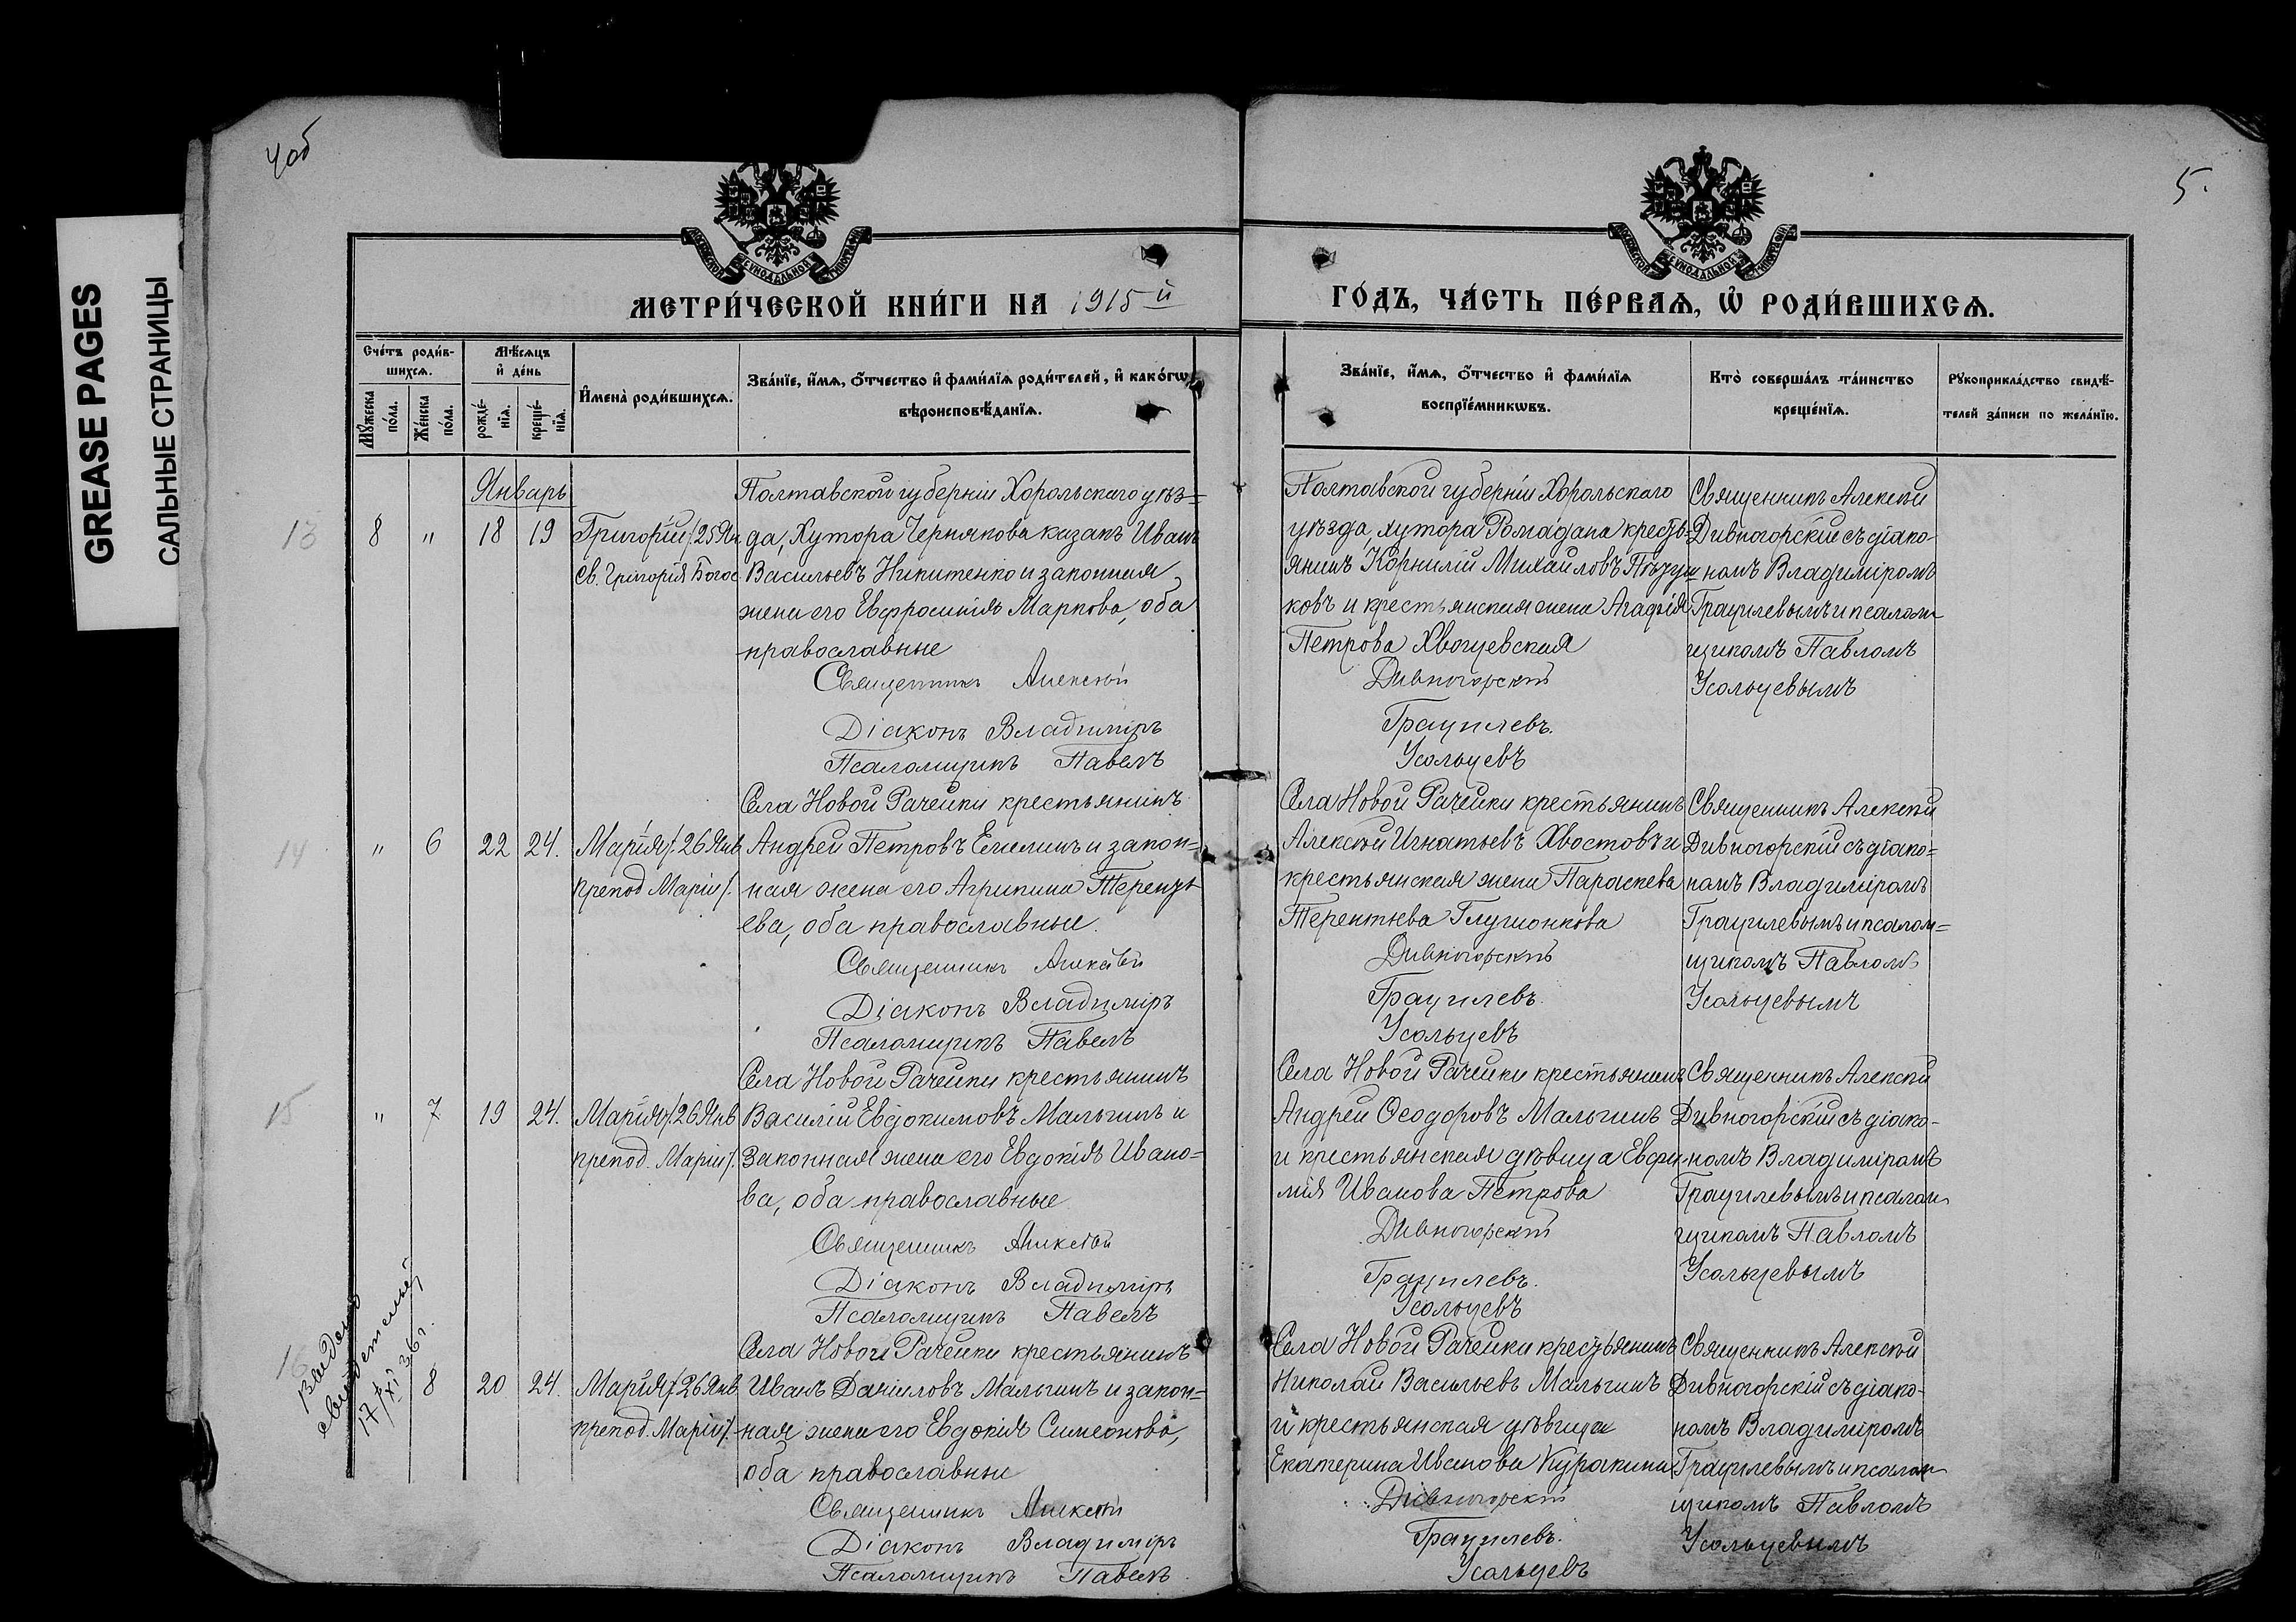 4об
5.
GREASE PAGES
САЛЬНЫЕ СТРАНИЦЫ
МОСКОВСКОЙ СѴНОДАЛЬНОЙ ТИПОГРАФІИ
МОСКОВСКОЙ СѴНОДАЛЬНОЙ ТИПОГРАФІИ
МЕТРИ́ЧЕСКОЙ КНИ́ГИ НА 1915 й
ГО́ДЪ, ЧА́СТЬ ПЕ́РВАѦ, Ѽ РОДИ́ВШИХСѦ.
Сче́тъ роди́в-
шихсѧ.
Мꙋжеска по́ла.
Же́нска по́ла.
Мѣ́сѧцъ
и҆ де́нь
рожде́-нїѧ.
креще́-нїѧ.
И҆мена̀ роди́вшихсѧ.
Зва́нїе, и҆́мѧ, ѻ҆́тчество и҆ фами́лїѧ роди́телей, и҆ како́гѡ
вѣроисповѣ́данїѧ.
Зва́нїе, и҆́мѧ, ѻ҆́тчество и҆ фами́лїѧ
воспрїе́мникѡвъ.
Кто̀ соверша́лъ та́инство
креще́нїѧ.
Рꙋкоприкла́дство свидѣ́-
телей за́писи по жела́нїю.
Январь
13
8 " 18 19
Григорій /25 Ян.
св. Григорія Богос.
Полтавской губерніи Хорольскаго уѣз=
да, Хутора Чернякова казакъ Иванъ
Васильевъ Никитенко и законная
жена его Евфросинія Маркова, оба
православные
Священникъ Алексѣй
Діаконъ Владиміръ
Псаломщикъ Павелъ
Полтавской губерніи Хорольскаго
уѣзда, хутора Ромадана кресть-
янинъ Корнилій Михаиловъ
ковъ и крестьянская жена Агафія
Петрова
Дивногорскій
Грацилевъ.
Усольцевъ
Священникъ Алексѣй
Дивногорскій съ діако-
номъ Владиміромъ
Грацилевымъ и псалом-
щикомъ Павломъ
Усольцевымъ
14
" 6 22 24.
Марія /26 Янв
препод Маріи/.
Села Новой Рачейки крестьянинъ
Андрей Петровъ Емелинъ и закон=
ная жена его Агрипина Терентьева,
ева, оба православные.
Священникъ Алексѣй
Діаконъ Владиміръ
Псаломщикъ Павелъ
Села Новой Рачейки крестьянинъ
Алексѣй Игнатьевъ Хвостовъ и
крестьянская жена Параскева
Терентьева Глушонкова
Дивногорскій
Грацилевъ.
Усольцевъ
Священникъ Алексѣй
Дивногорскій съ діако=
номъ Владиміромъ
Грацилевымъ и псалом=
щикомъ Павломъ
Усольцевымъ
15
" 7 19 24.
Марія /26 Янв
препод. Маріи/.
Села Новой Рачейки крестьянинъ
Василій Евдокимовъ Малыгинъ и
законная жена его Евдокія Ивано=
ва, оба православные
Священникъ Алексѣй
Діаконъ Владиміръ
Псаломщикъ Павелъ
Села Новой Рачейки крестьянинъ
Андрей Ѳеодоровъ Малыгинъ
и крестьянская дѣвица Евфи-
мія Иванова Петрова
Дивногорскій
Грацилевъ.
Усольцевъ
Священникъ Алексѣй
Дивногорскій съ діако-
номъ Владиміромъ
Грацилевымъ и псалом-
щикомъ Павломъ
Усольцевымъ
16
Выдано
17/XI 36 г.
8 20 24.
Марія /26 Янв
препод. Маріи/.
Села Новой Рачейки крестьянинъ
Иванъ Даніиловъ Малыгинъ и закон=
ная жена его Евдокія Симеонова,
оба православные
Священникъ Алексѣй
Діаконъ Владиміръ
Псаломщикъ Павелъ
Села Новой Рачейки крестьянинъ
Николай Васильевъ Малыгинъ
и крестьянская дѣвица
Екатерина Иванова Куракина
Дивногорскій
Грацилевъ.
Усольцевъ
Священникъ Алексѣй
Дивногорскій съ діако-
номъ Владиміромъ
Грацилевымъ и псалом-
щикомъ Павломъ
Усольцевымъ